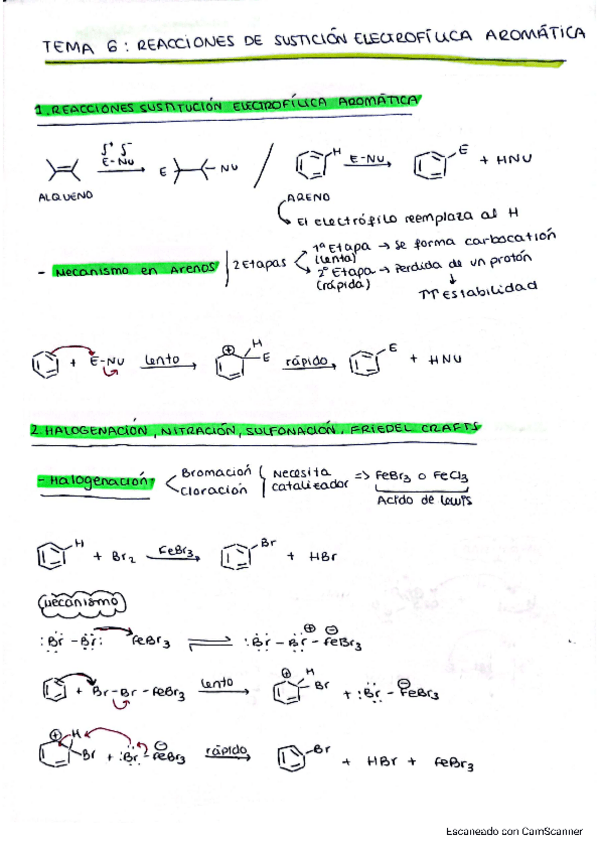 TEMA 6: REACCIONES DE SUSTICIÓN ELECTROFÍLICA AROMÁTICA
1. REACCIONES SUSTITUCIÓN ELECTROFÍLICA AROMÁTICA
δ+ δ-
E-NU
E NU
ALQUENO
H E-NU E + HNU
ARENO
El electrófilo reemplaza al H
- Mecanismo en Arenos 2 Etapas
1ª Etapa → Se forma carbocatión
(lenta)
2º Etapa → Perdida de un protón
(rápida)
↑↑ Estabilidad
+ E-NU lento ⊕ H E rápido E + HNU
2. HALOGENACIÓN, NITRACIÓN, SULFONACIÓN, FRIEDEL CRAFTS
- Halogenación
Bromación
Cloración
Necesita
catalizador
=> FeBr3 o FeCl3
Acido de Lewis
H + Br2 FeBr3 Br + HBr
Mecanismo
:Br-Br: FeBr3 ⇌ :Br-Br⊕-FeBr3⊖
+ Br-Br-FeBr3 lento ⊕ H Br + :Br-FeBr3⊖
⊕ H Br + :Br-FeBr3⊖ rápido Br + HBr + FeBr3
Escaneado con CamScanner